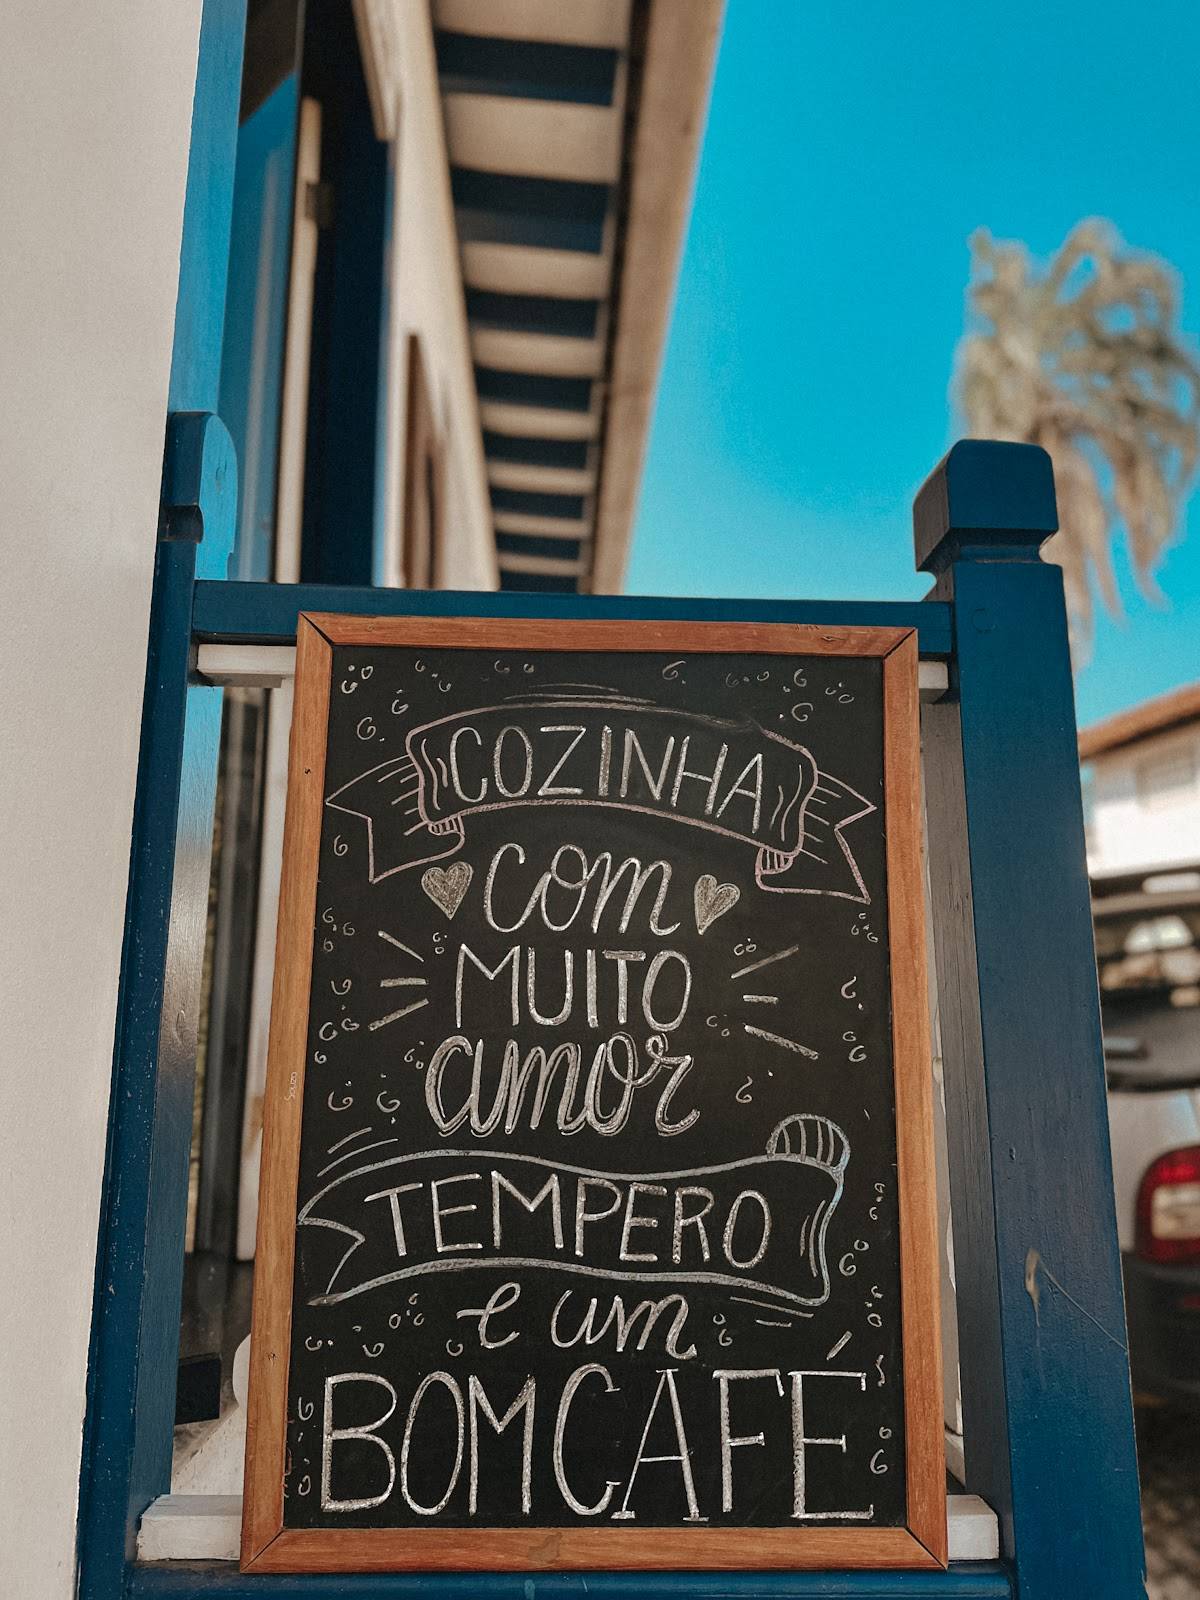 COZINHA
com
MUITO
amor
TEMPERO
e um
BOM CAFÉ
Souza